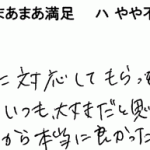 まあまあ満足 ハ やや不
に対応してもらっ
いつも大丈まだと思
から本当に良かった